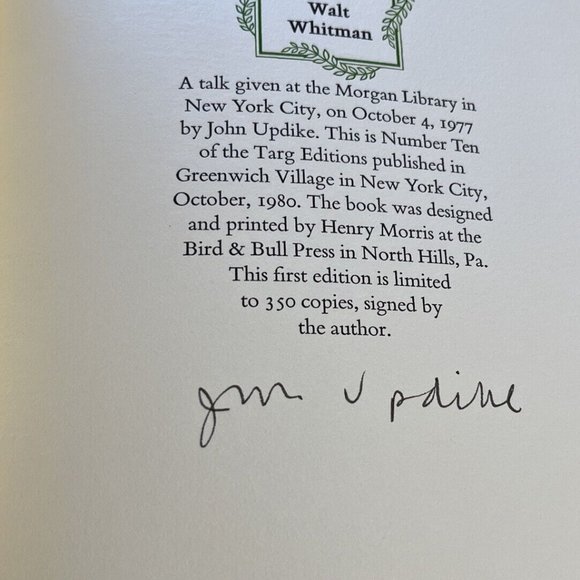 Walt
Whitman
A talk given at the Morgan Library in
New York City, on October 4, 1977
by John Updike. This is Number Ten
of the Targ Editions published in
Greenwich Village in New York City,
October, 1980. The book was designed
and printed by Henry Morris at the
Bird & Bull Press in North Hills, Pa.
This first edition is limited
to 350 copies, signed by
the author.
John Updike